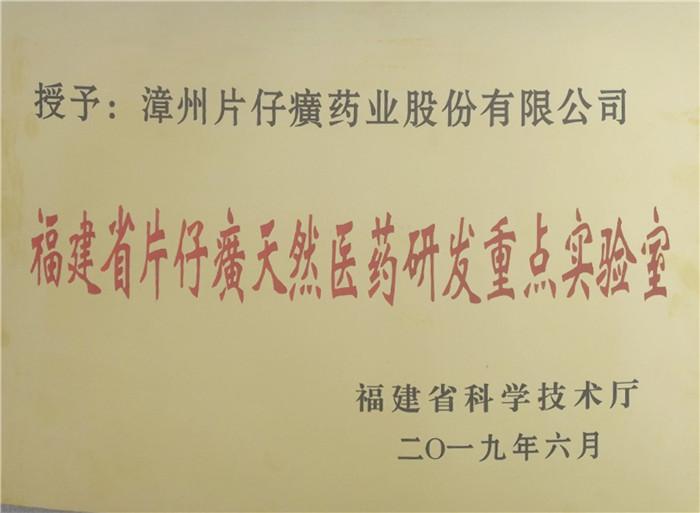 授予：漳州片仔癀药业股份有限公司
福建省片仔癀天然医药研发重点实验室
福建省科学技术厅
二〇一九年六月